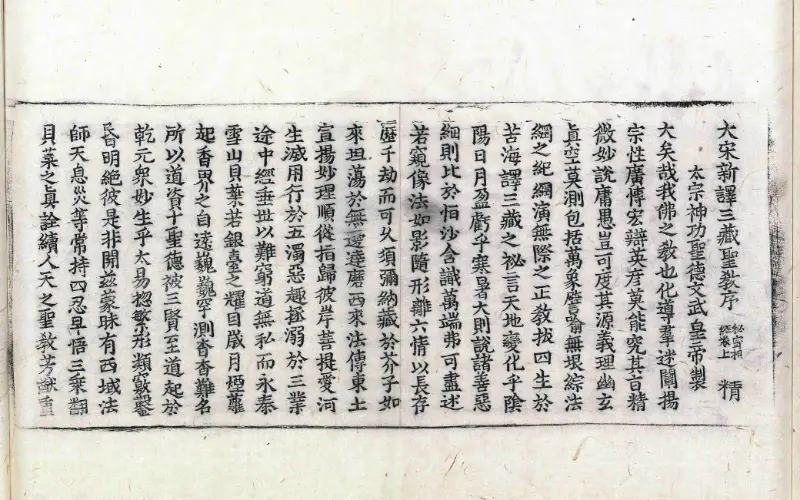 大宋新譯三藏聖教序 秘密相經卷上 精
太宗神功聖德文武皇帝製
大矣哉我佛之教也化導羣迷闡揚
宗性廣博宏辯英彥莫能究其旨精
微妙說庸愚豈可度其源義理幽玄
眞空莫測包括萬象譬喻無垠綜法
網之紀綱演無際之正教拔四生於
苦海譯三藏之祕言天地變化乎陰
陽日月盈虧乎寒暑大則說諸善惡
細則比於恒沙含識萬端弗可盡述
若窺像法如影隨形離六情以長存
歷千劫而可久須彌納藏於芥子如
來坦蕩於無邊達磨西來法傳東土
宣揚妙理順從指歸彼岸菩提愛河
生滅用行於五濁惡趣拯溺於三業
途中經垂世以難窮道無私而永泰
雪山貝葉若銀臺之耀目歲月煙蘿
起香界之自遠巍巍罕測杳杳難名
所以道資十聖德被三賢至道起於
乾元眾妙生乎太易揔繁形類竅鑿
昏明絕彼是非開茲蒙昧有西域法
師天息災等常持四忍早悟三乘翻
貝葉之眞詮續人天之聖教芳猷重